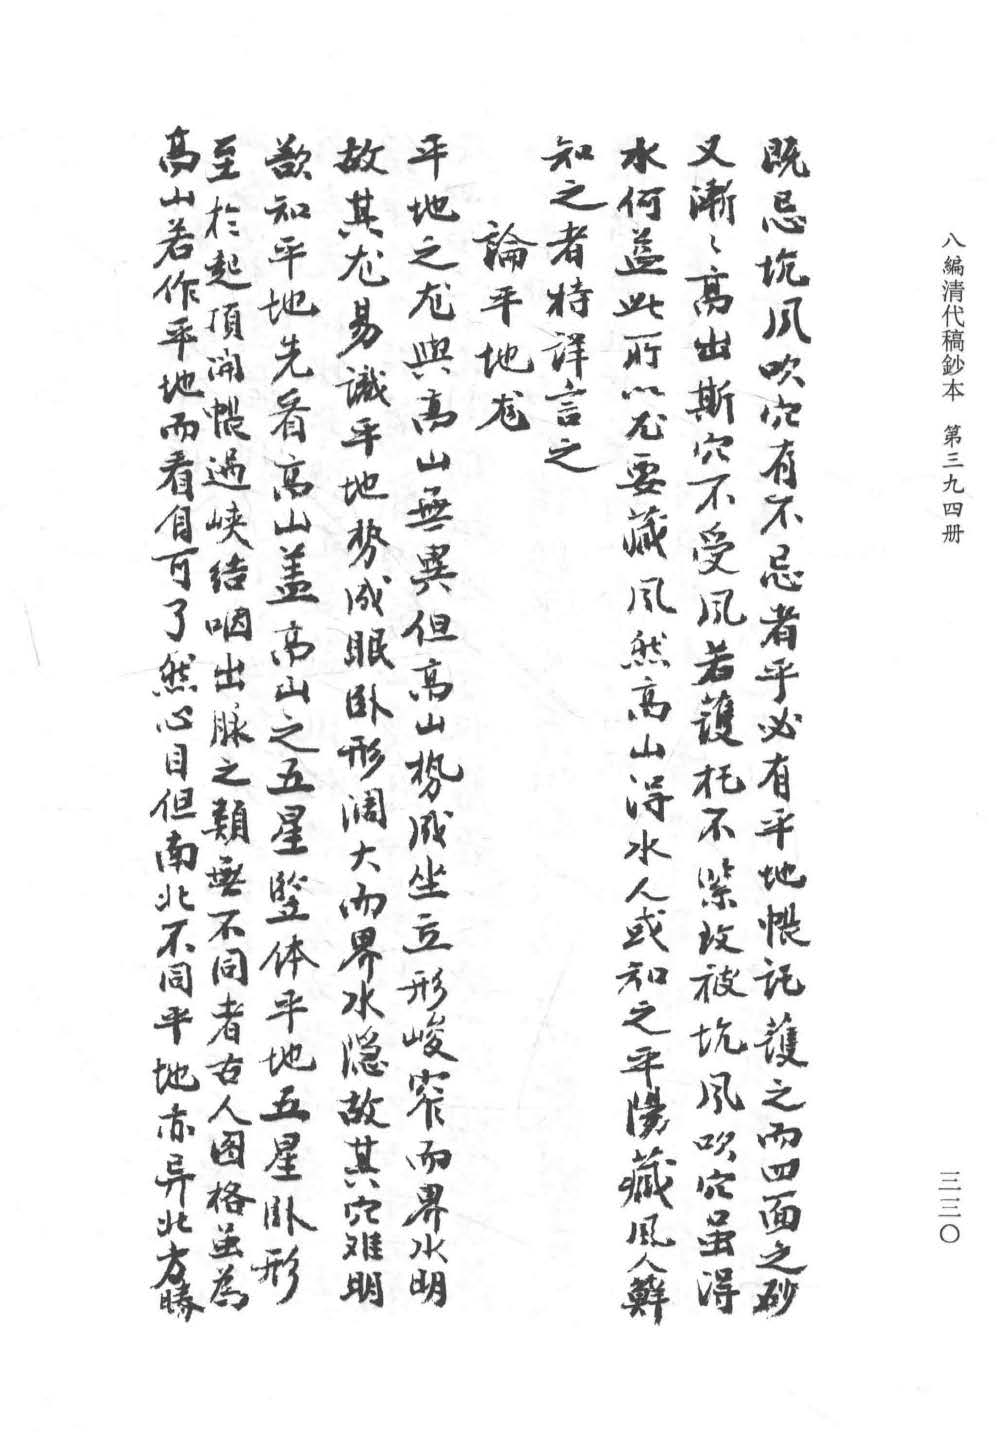 八編清代稿鈔本 第三九四册
既忌坑風吹穴有不忌者乎必有平地帳託護之而四面之砂
又漸〻高出斯穴不受風若護托不緊致被坑風吹穴虽得
水何益此所以尨要藏風然高山得水人或知之平陽藏風人鮮
知之者特詳言之
論平地尨
平地之尨與高山無異但高山势成坐立形峻窄而界水明
故其尨易識平地势成眠卧形濶大而界水隐故其穴难明
欲知平地先看高山盖高山之五星竖体平地五星卧形
至於起頂開帳過峡结咽出脉之類無不同者古人图格虽為
高山若作平地而看自可了然心目但南北不同平地亦异北方勝
三三〇